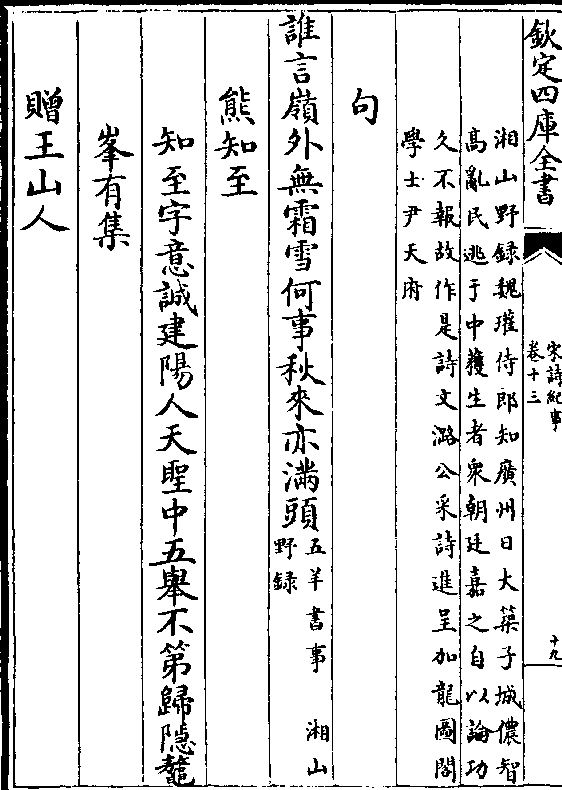 欽定四庫全書
宋詩紀事
卷十三
十九
湘山野録魏瓘侍郎知廣州日大築子城儂智
髙亂民逃于中獲生者衆朝廷嘉之自以論功
久不報故作是詩文潞公采詩進呈加龍圖閣
學士尹天府
句
誰言嶺外無霜雪何事秋來亦滿頭
五羊書事　湘山
野録
熊知至
知至字意誠建陽人天聖中五舉不第歸隱鼇
峯有集
贈王山人